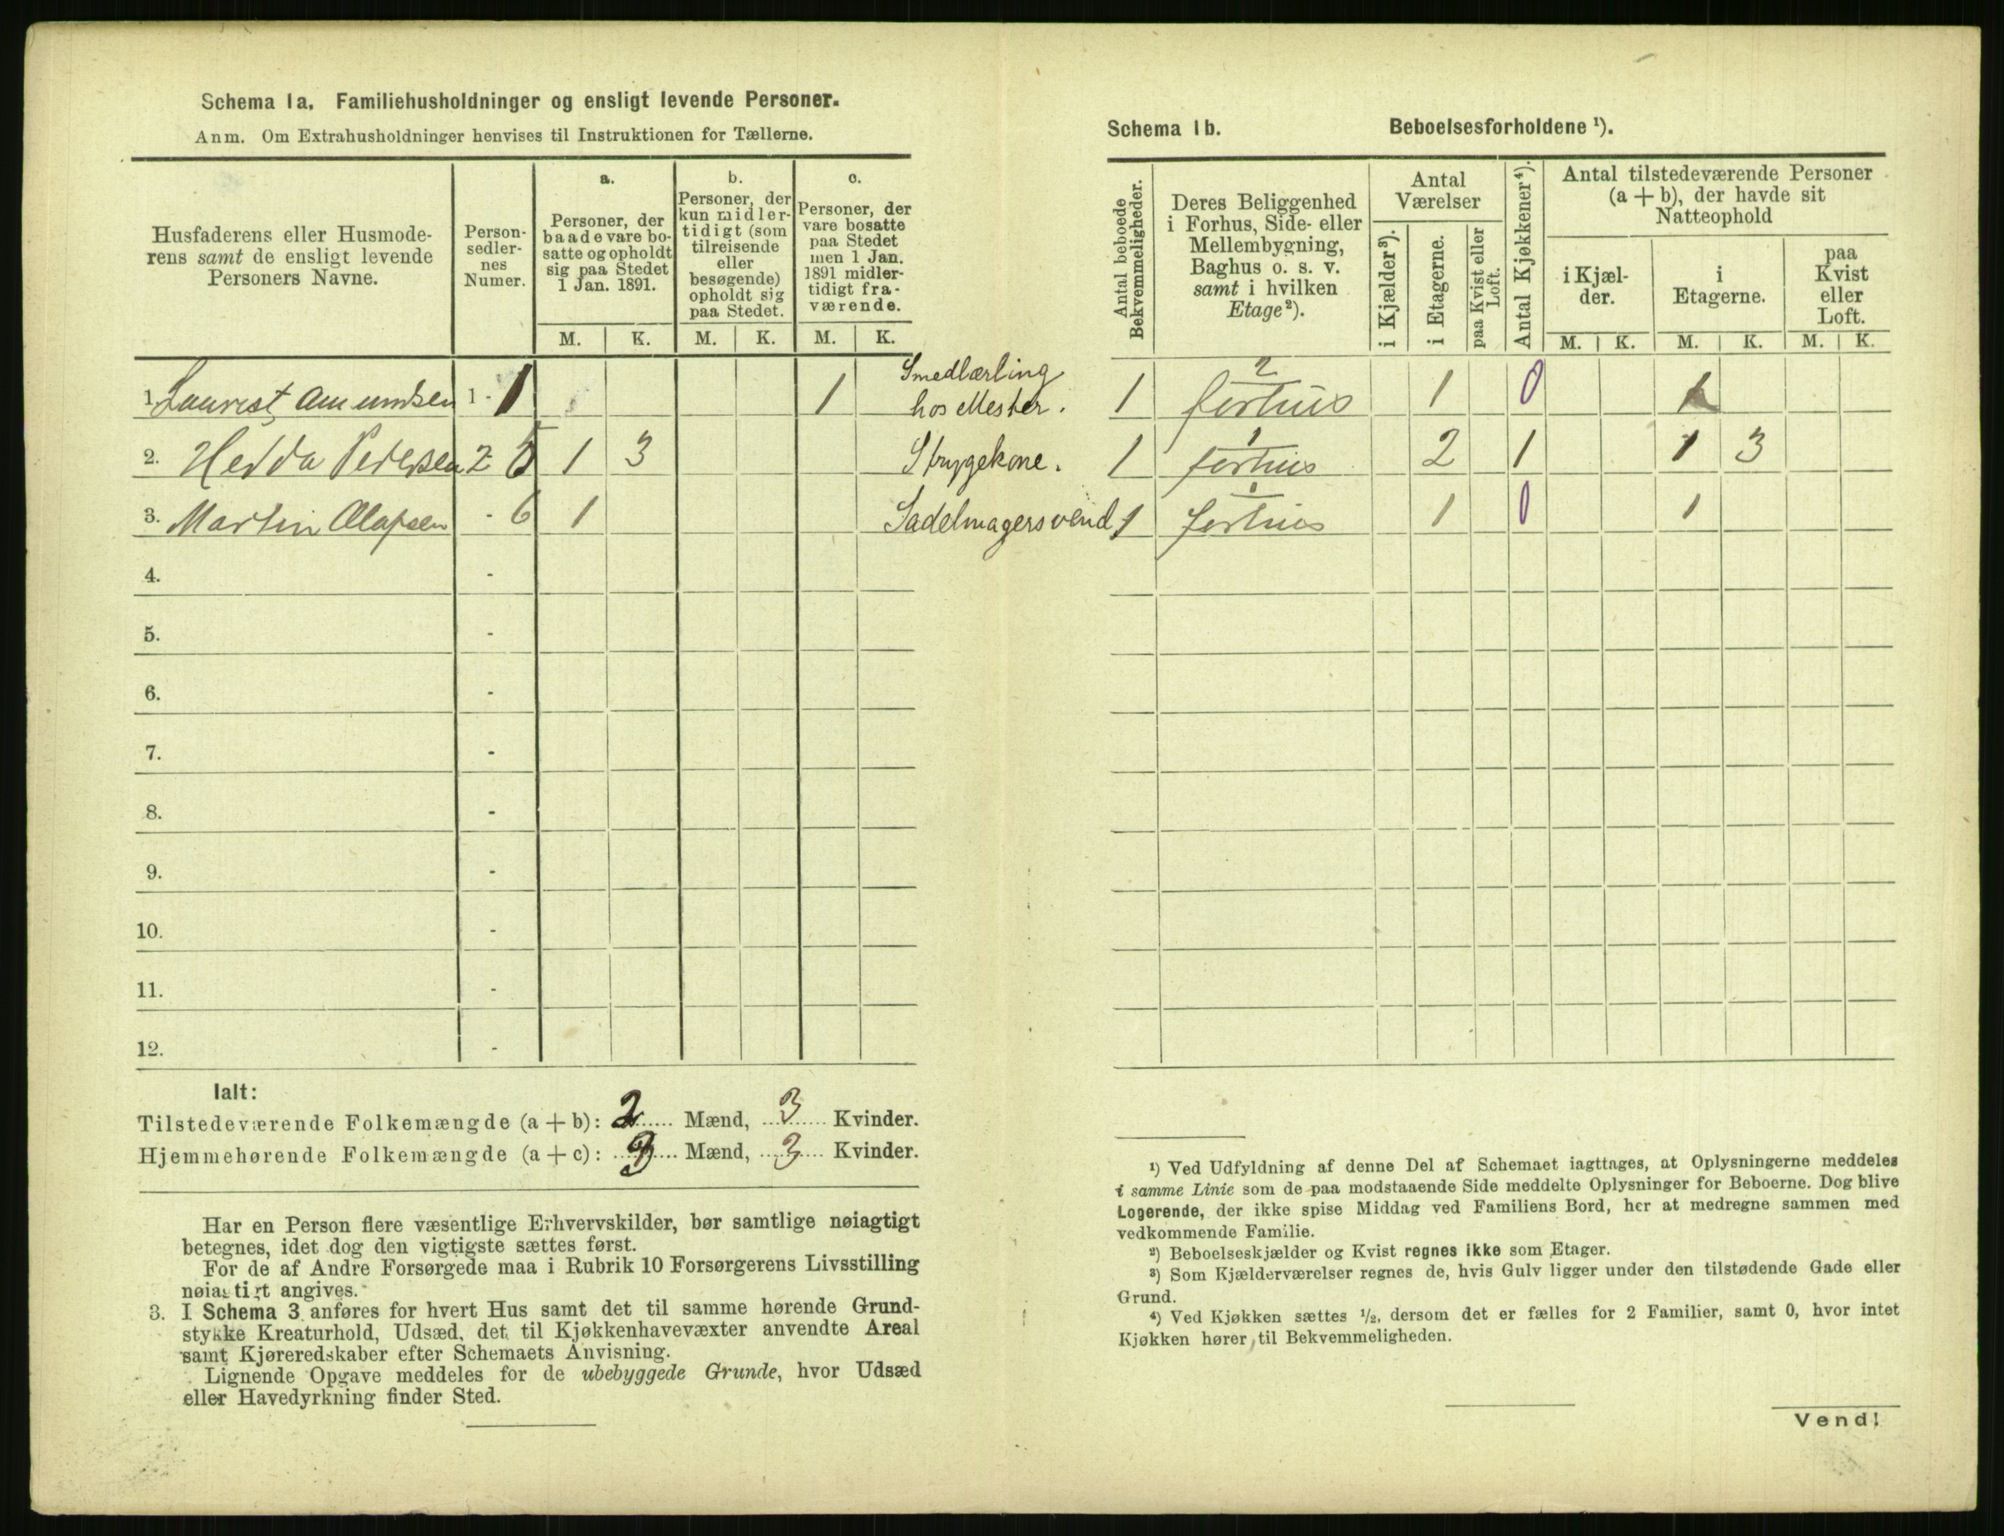 Schema 1a. Familiehusholdninger og ensligt levende Personer.
Anm. Om Extrahusholdninger henvises til Instruktionen for Tællerne.
Husfaderens eller Husmode-
rens samt de ensligt levende
Personers Navne.
Person-
sedler-
nes
Numer.
a.
Personer, der
baade vare bo-
satte og opholdt
sig paa Stedet
1 Jan. 1891.
b.
Personer, der
kun midler-
tidigt (som
tilreisende
eller
besøgende)
opholdt sig
paa Stedet.
c.
Personer, der
vare bosatte
paa Stedet
men 1 Jan.
1891 midler-
tidigt fra-
værende.
M. K. M. K. M. K.
1. Laurest Amundsen 1 - 1 1 Smedlærling
hos Mester.
2. Hedda Pedersen 2 - 5 1 3 Strygekone.
3. Martin Olafsen - 6 1 Sadelmagersvend
4. -
5. -
6. -
7. -
8. -
9. -
10. -
11. -
12. -
Ialt:
Tilstedeværende Folkemængde (a + b): 2 Mænd, 3 Kvinder.
Hjemmehørende Folkemængde (a + c): 3 Mænd, 3 Kvinder.
Har en Person flere væsentlige Erhvervskilder, bør samtlige nøiagtigt
betegnes, idet dog den vigtigste sættes først.
For de af Andre Forsørgede maa i Rubrik 10 Forsørgerens Livsstilling
nøiagtigt angives.
3. I Schema 3 anføres for hvert Hus samt det til samme hørende Grund-
stykke Kreaturhold, Udsæd, det til Kjøkkenhavevæxter anvendte Areal
samt Kjøreredskaber efter Schemaets Anvisning.
Lignende Opgave meddeles for de ubebyggede Grunde, hvor Udsæd
eller Havedyrkning finder Sted.
Schema 1b. Beboelsesforholdene ¹).
Antal beboede
Bekvemmeligheder.
Deres Beliggenhed
i Forhus, Side- eller
Mellembygning,
Baghus o. s. v.
samt i hvilken
Etage²).
Antal
Værelser
i Kjælder³).
i Etagerne.
paa Kvist eller
Loft.
Antal Kjøkkener⁴).
Antal tilstedeværende Personer
(a + b), der havde sit
Natteophold
i Kjæl-
der.
i
Etagerne.
paa
Kvist
eller
Loft.
M. K. M. K. M. K.
1 2 forhus 1 0
1 1 forhus 2 1 1 3
1 1 forhus 1 0 1
¹) Ved Udfyldning af denne Del af Schemaet iagttages, at Oplysningerne meddeles
i samme Linie som de paa modstaaende Side meddelte Oplysninger for Beboerne. Dog blive
Logerende, der ikke spise Middag ved Familiens Bord, her at medregne sammen med
vedkommende Familie.
²) Beboelseskjælder og Kvist regnes ikke som Etager.
³) Som Kjælderværelser regnes de, hvis Gulv ligger under den tilstødende Gade eller
Grund.
⁴) Ved Kjøkken sættes ½, dersom det er fælles for 2 Familier, samt 0, hvor intet
Kjøkken hører til Bekvemmeligheden.
Vend!